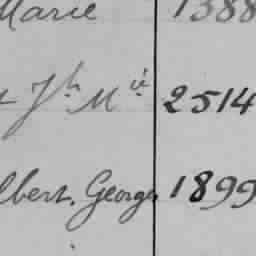 Marie 1388
Jh Mie 2514
lbert. Georges 1899